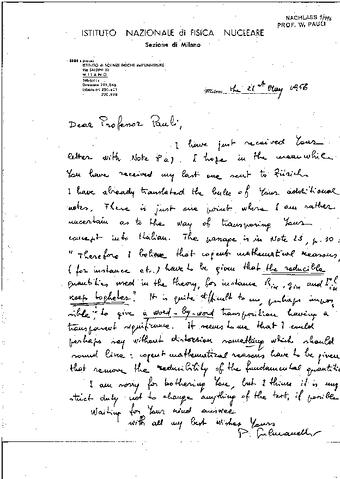 NACHLASS
PROF. W. PAULI
ISTITUTO NAZIONALE di FISICA NUCLEARE
Sezione di Milano
ISTITUTO di SCIENZE FISICHE dell'UNIVERSITÀ
MILANO
Milano, the 21st May 1956
Dear Professor Pauli,
I have just received Your
letter with Note I hope in the meanwhile
You have received my last one sent to Zürich
I have already translated the bulk of Your additional
notes. There is just one point where I am rather
uncertain as to the way of transposing Your
concept into Italian. The passage is in Note 23, p. 10:
"Therefore I believe that cogent mathematical reasons,
(for instance etc.) have to be given that the reducible
quantities used in the theory, for instance and
keep togheter." It is quite difficult to me, perhaps impos
sible to give a word-by-word transposition having a
transparent significance. It seems to me that I could
perhaps say without distorsion something which should
sound like: cogent mathematical reasons have to be given
that remove the reducibility of the fundamental quantities
I am sorry for bothering You, but I think it is my
strict duty not to change anything of the text, if possible
Waiting for Your kind answer
with all my best wishes Yours
P.